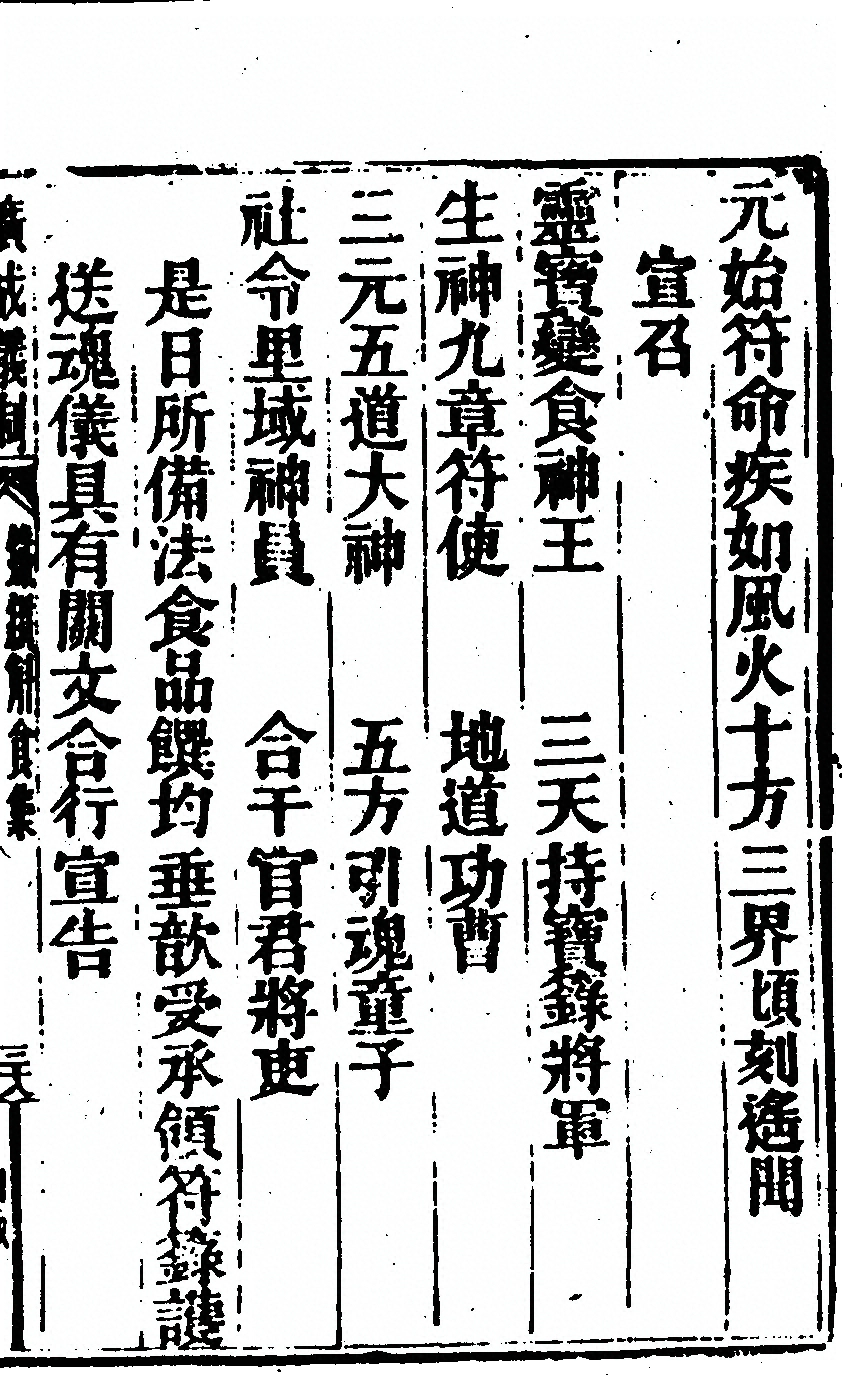 元始符命疾如風火十方三界頃刻遙聞
宣召
靈寶變食神王　三天持寶籙將軍
生神九章符使　地道功曹
三元五道大神　五方引魂童子
社令里域神員　合干官君將吏
是日所備法食品饌均垂歆受承領符籙護
送魂儀具有關文合行宣告
廣成儀制 斛食集